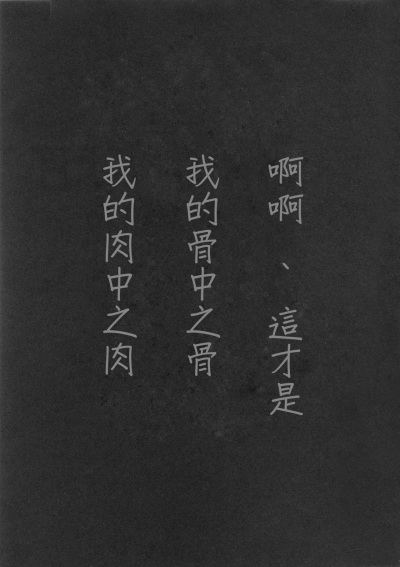 啊啊、這才是
我的骨中之骨
我的肉中之肉